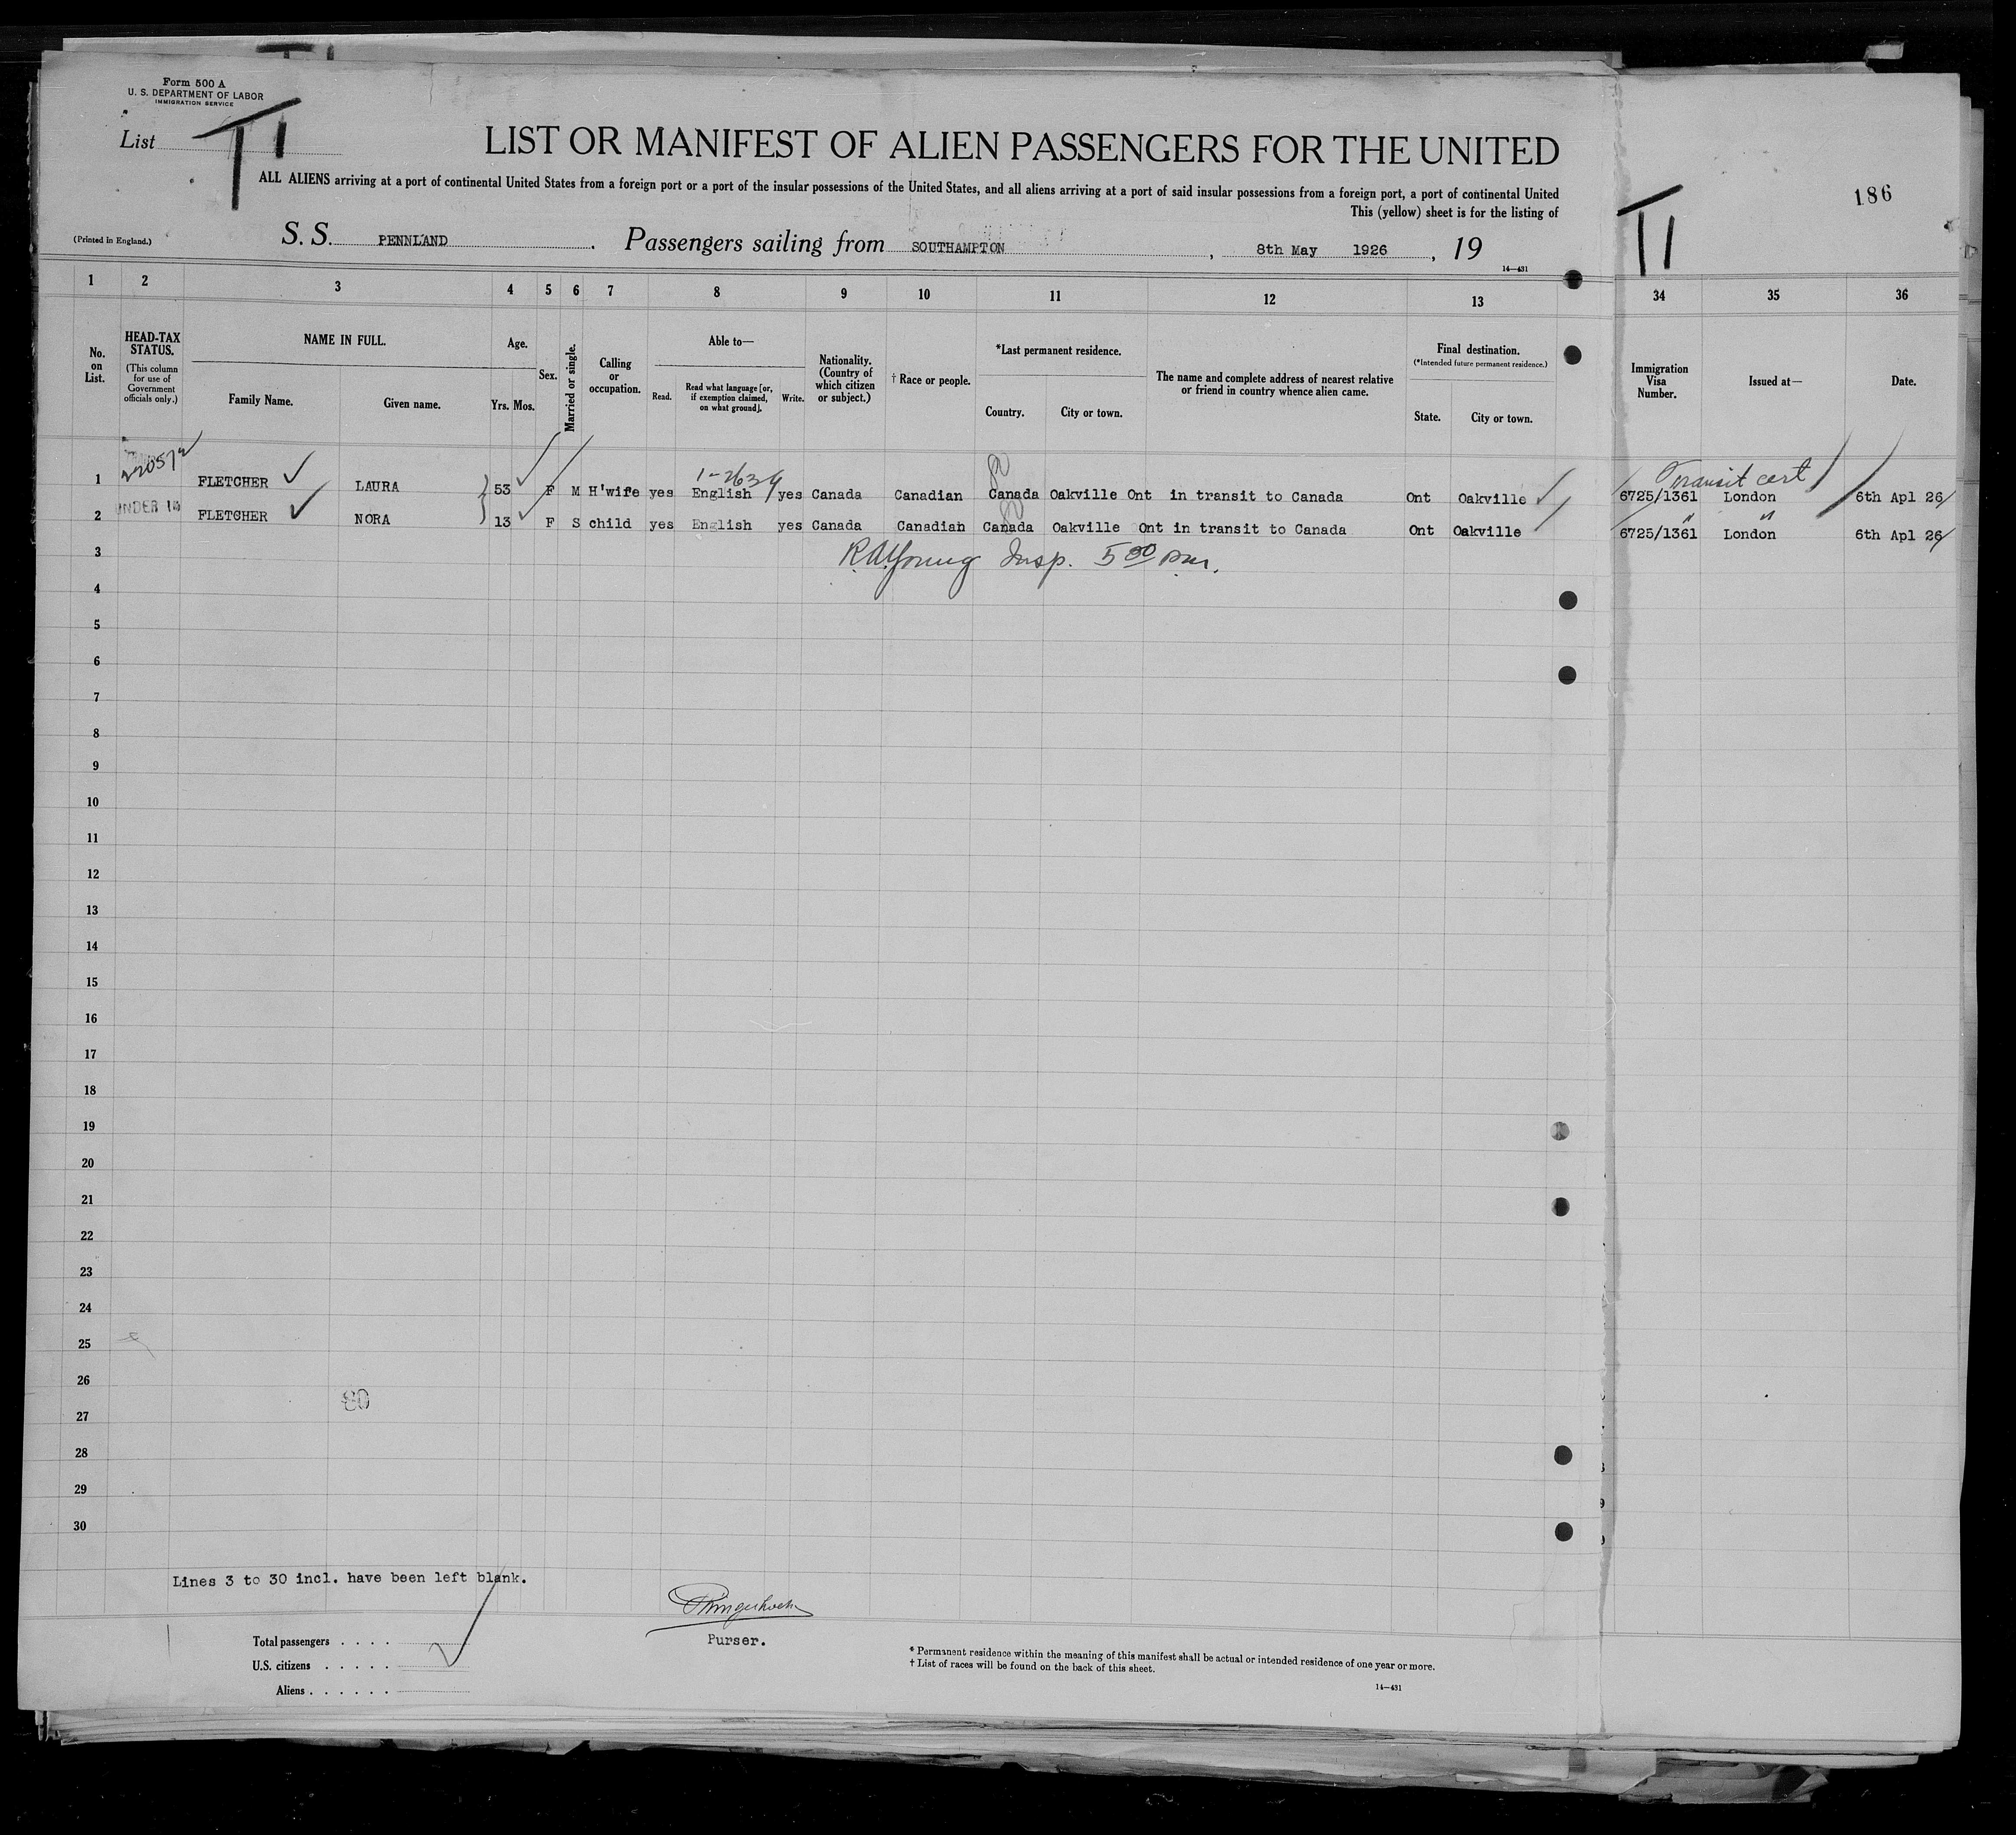 Form 500 A
U. S. DEPARTMENT OF LABOR
IMMIGRATION SERVICE
List
LIST OR MANIFEST OF ALIEN PASSENGERS FOR THE UNITED
ALL ALIENS arriving at a port of continental United States from a foreign port or a port of the insular possessions of the United States, and all aliens arriving at a port of said insular possessions from a foreign port, a port of continental United
This (yellow) sheet is for the listing of
186
(Printed in England.) S. S. PENNLAND. Passengers sailing from SOUTHAMPTON, 8th May 1926, 19
14—431
1 2 3 4 5 6 7 8 9 10 11 12 13 34 35 36
No. on List.
HEAD-TAX STATUS. (This column for use of Government officials only.)
NAME IN FULL.
Family Name. Given name.
Age.
Yrs. Mos.
Sex.
Married or single.
Calling or occupation.
Able to—
Read. Read what language [or, if exemption claimed, on what ground]. Write.
Nationality. (Country of which citizen or subject.)
† Race or people.
*Last permanent residence.
Country. City or town.
The name and complete address of nearest relative or friend in country whence alien came.
Final destination.
(*Intended future permanent residence.)
State. City or town.
Immigration Visa Number.
Issued at—
Date.
1-2634
Transit cert
1 FLETCHER LAURA 53 F M H'wife yes English yes Canada Canadian Canada Oakville Ont in transit to Canada Ont Oakville 6725/1361 London 6th Apl 26
2 UNDER FLETCHER NORA 13 F S child yes English yes Canada Canadian Canada Oakville Ont in transit to Canada Ont Oakville 6725/1361 London 6th Apl 26
3 R.A. Young Insp. 5 00 pm.
4
5
6
7
8
9
10
11
12
13
14
15
16
17
18
19
20
21
22
23
24
25
26
27
28
29
30
Lines 3 to 30 incl. have been left blank.
Purser.
Total passengers . . . .
U.S. citizens . . . . .
Aliens . . . . . .
* Permanent residence within the meaning of this manifest shall be actual or intended residence of one year or more.
† List of races will be found on the back of this sheet.
14—431